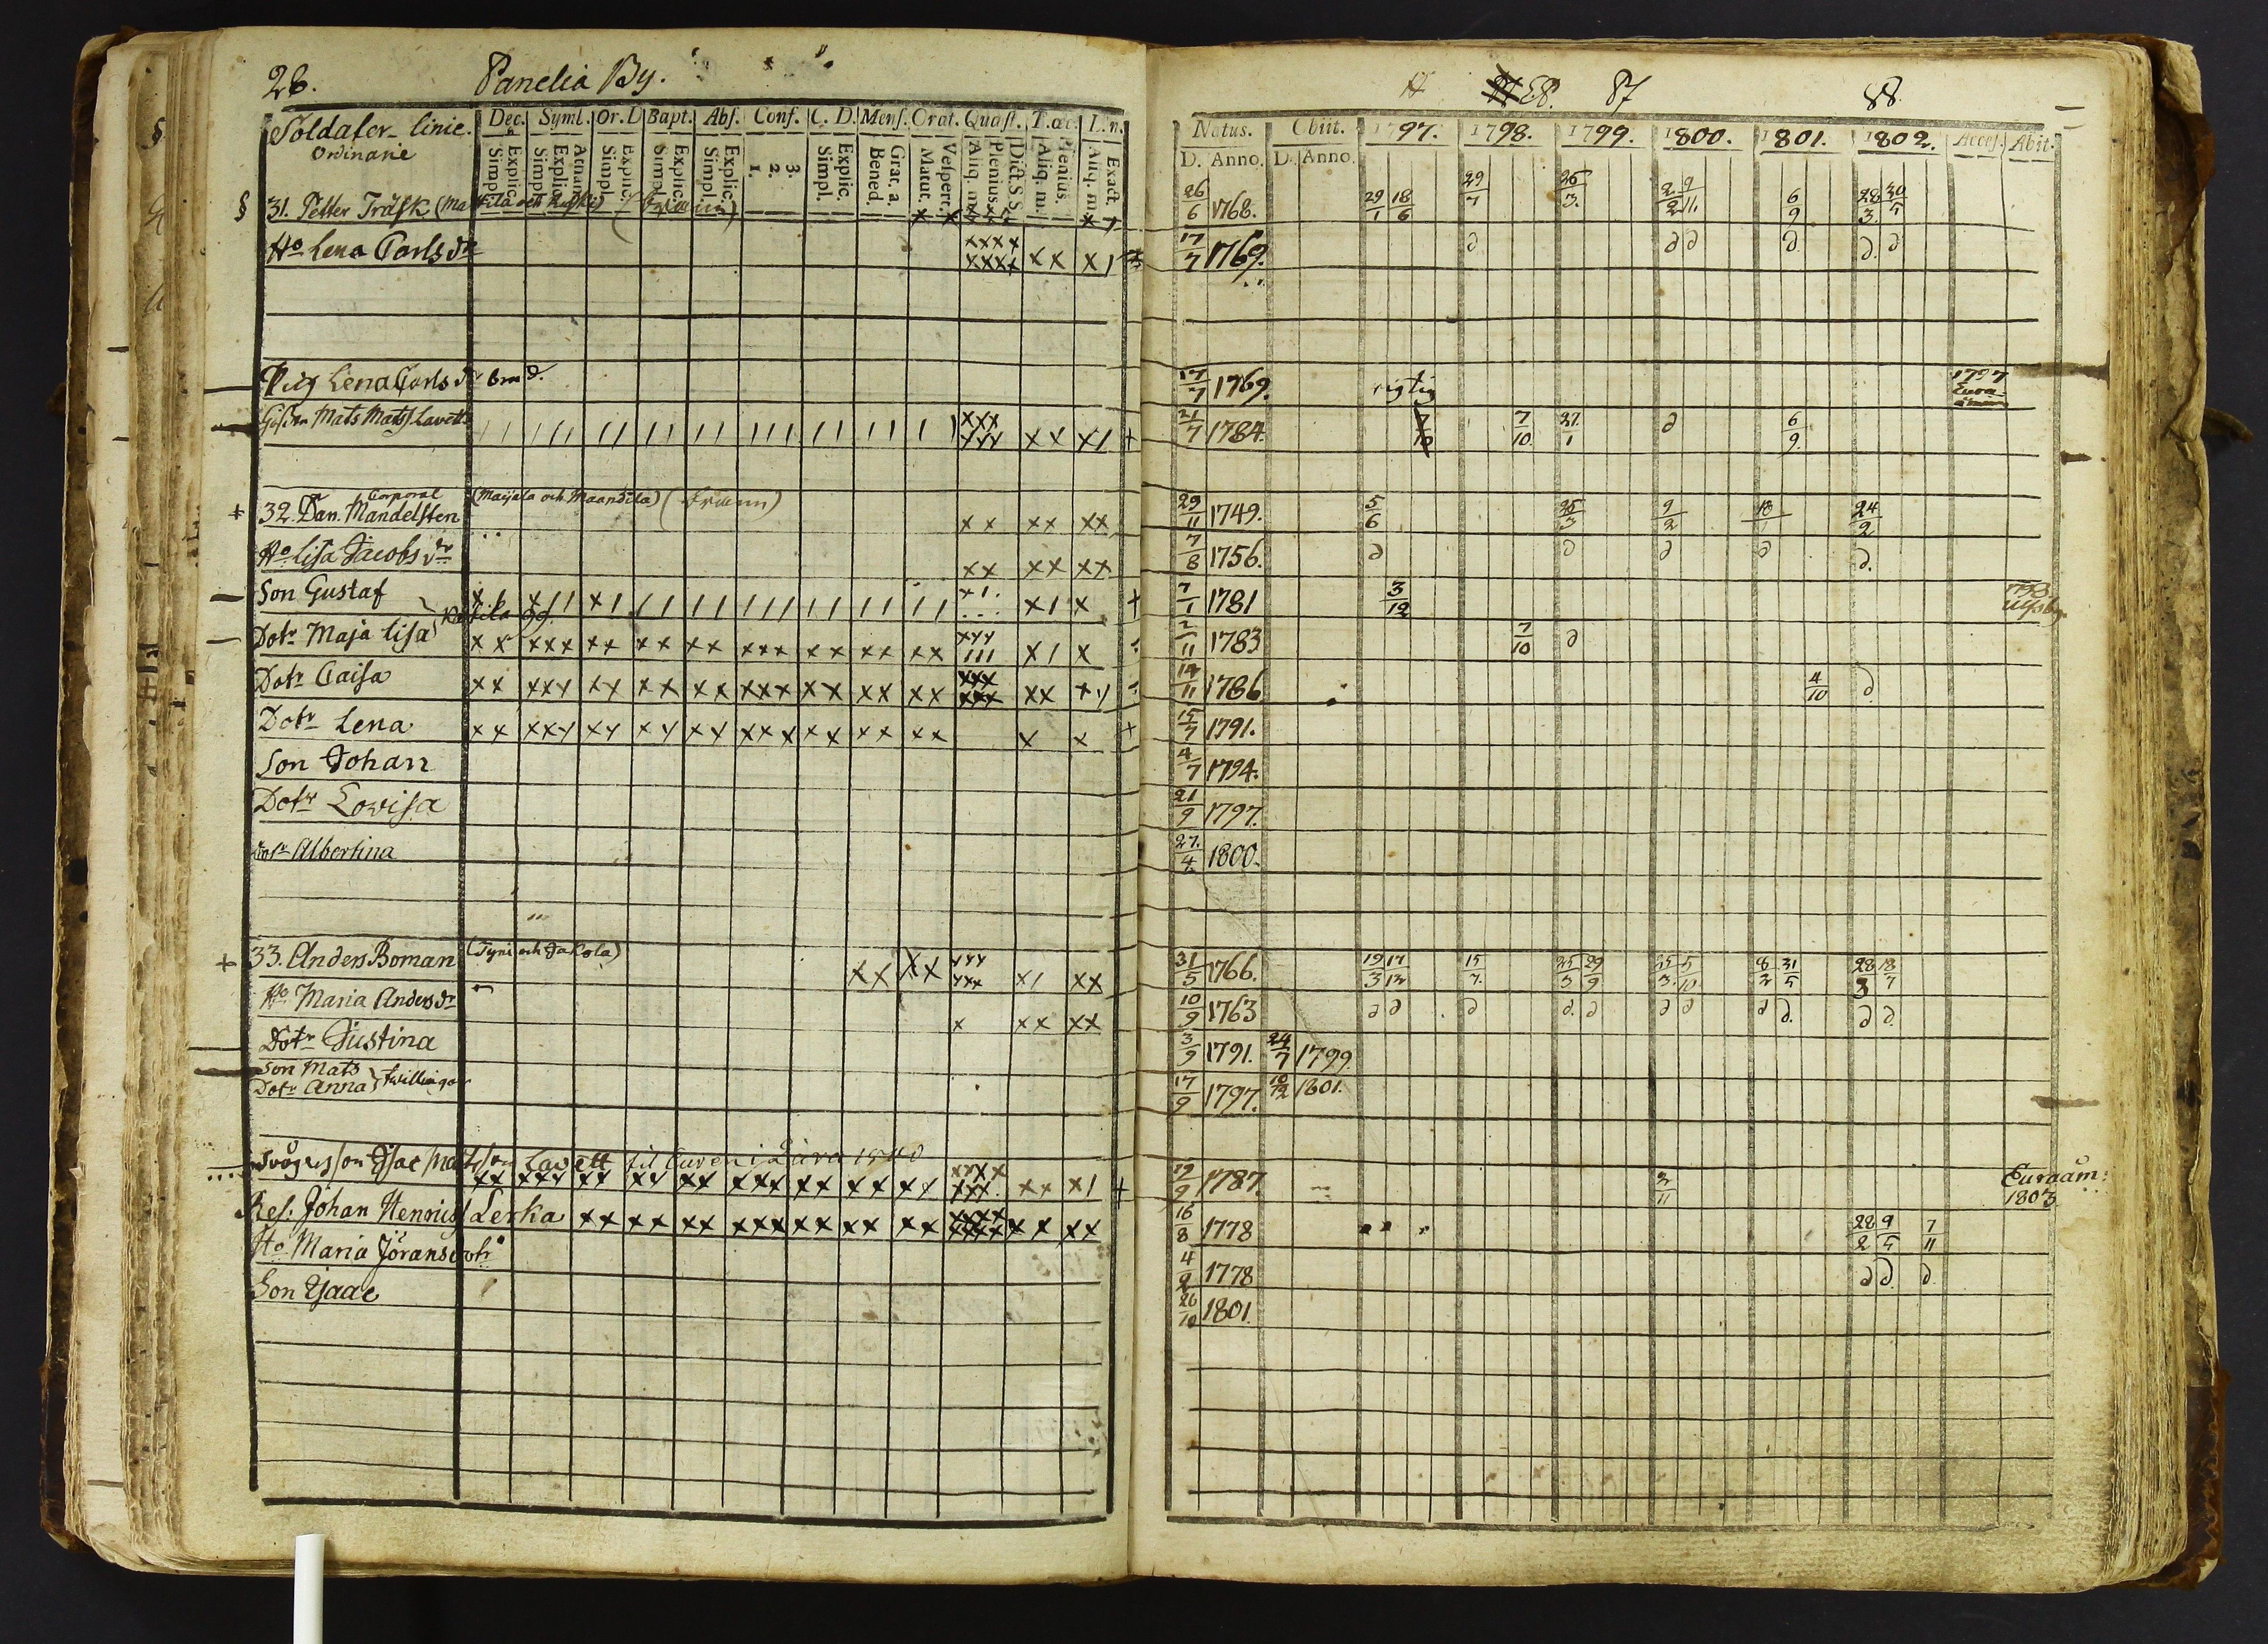 28. Panelia By.
Soldater linie. Dec. Symb. Or. D Bapt. Abs. Conf. C. D. Mens. Orat. Quæst. T. œc. L. n.
Ordinarie
Explic. Simpl. Athan. Explic. Simpl. Explic. Simpl. Explic. Simpl. Explic. Simpl. 3. 2. 1. Explic. Simpl. Grat. a. Bened. Vesper. Matut. Dict. S. S. Plenius. Aliq. m. Plenius. Aliq. m. Exact. Aliq. m.
§ 31. Petter Träsk
Ho Lena Carls dr
Pig Lena Carls dr
Mats Mats Lavett
Corporal (Maijala och Maansila)
+ 32. Dan. Mandelsten
Ho Lisa Jacobs dr
Son Gustaf
Dotr Maja Lisa
Dotr Caisa
Dotr Lena
Son Johan
Dotr Lovisa
Dotr Albertina
+ 33. Anders Boman (Tyni och Jakola)
Ho Maria Anders dr
Dotr Justina
Son Mats
Dotr Anna } Twillingar
Svågers son Isac Matsson Lavett
Res. Johan Henrics Lerka
Ho Maria Jörans dotr
Son Isaac
E8. 87 88.
Natus. Obiit. 1797. 1798. 1799. 1800. 1801. 1802. Acces. Abit.
D. Anno. D. Anno.
26/6 1768. 29/1 18/6 29/7 26/3. 6/9
17/7 1769.
17/7 1769. rigtig 1797
21/7 1784. 7/10 7/10. 27/1 6/9.
29/11 1749. 5/6 25/3 9/2 24/2
7/8 1756.
7/1 1781 3/12
2/11 1783 7/10
14/11 1786 4/10
15/7 1791.
4/7 1794.
21/9 1797.
27./4 1800.
31/5 1766. 19/3 17/12 15/7. 25/3 29/9 25/3 5/10 8/2 31/5 28/3 18/7
10/9 1763
3/9 1791. 24/7 1799.
17/9 1797. 10/12 1801.
19/9 1787. Euraåm:
1803.
16/8 1778 28/2 9/5 7/11
4/9 1778
26/10 1801.